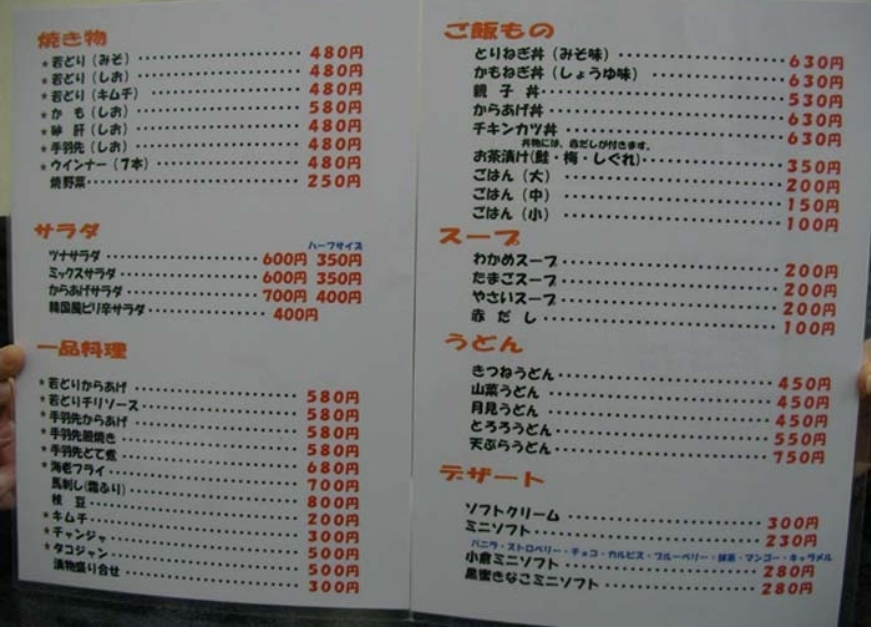 焼き物
*若どり（みそ） 480円
*若どり（しお） 480円
*若どり（キムチ） 480円
*かも（しお） 580円
*砂肝（しお） 480円
*手羽先（しお） 480円
*ウインナー（7本） 480円
焼野菜 250円
サラダ
ハーフサイズ
ツナサラダ 600円 350円
ミックスサラダ 600円 350円
からあげサラダ 700円 400円
韓国風ピリ辛サラダ 400円
一品料理
*若どりからあげ 580円
*若どりチリソース 580円
*手羽先からあげ 580円
*手羽先照焼き 580円
*手羽先どて煮 680円
*海老フライ 700円
馬刺し（霜ふり） 800円
枝豆 200円
*キムチ 300円
*チャンジャ 500円
*タコジャン 500円
漬物盛り合せ 300円
ご飯もの
とりねぎ丼（みそ味） 630円
かもねぎ丼（しょうゆ味） 630円
親子丼 530円
からあげ丼 630円
チキンカツ丼 630円
丼物には、赤だしが付きます。
お茶漬け（鮭・梅・しぐれ） 350円
ごはん（大） 200円
ごはん（中） 150円
ごはん（小） 100円
スープ
わかめスープ 200円
たまごスープ 200円
やさいスープ 200円
赤だし 100円
うどん
きつねうどん 450円
山菜うどん 450円
月見うどん 450円
とろろうどん 550円
天ぷらうどん 750円
デザート
ソフトクリーム 300円
ミニソフト 230円
バニラ・ストロベリー・チョコ・カルピス・ブルーベリー・抹茶・マンゴー・キャラメル
小倉ミニソフト 280円
黒蜜きなこミニソフト 280円